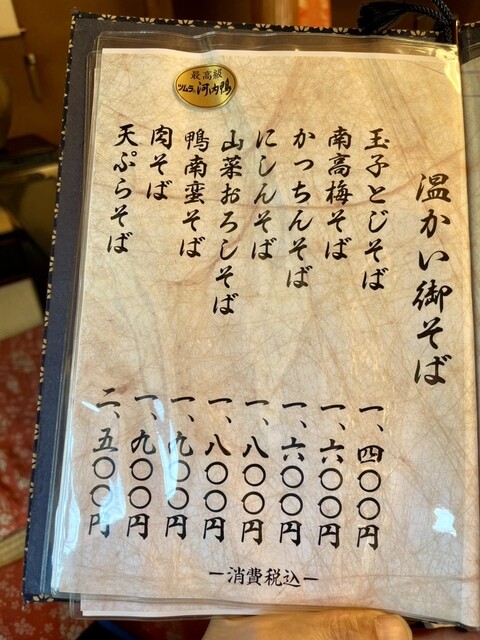 温かい御そば
玉子とじそば 一、四〇〇円
南高梅そば 一、六〇〇円
かっちんそば 一、六〇〇円
にしんそば 一、八〇〇円
山菜おろしそば 一、八〇〇円
鴨南蛮そば 一、九〇〇円
肉そば 一、九〇〇円
天ぷらそば 二、五〇〇円
最高級
ツムラの河内鴨
ー消費税込ー